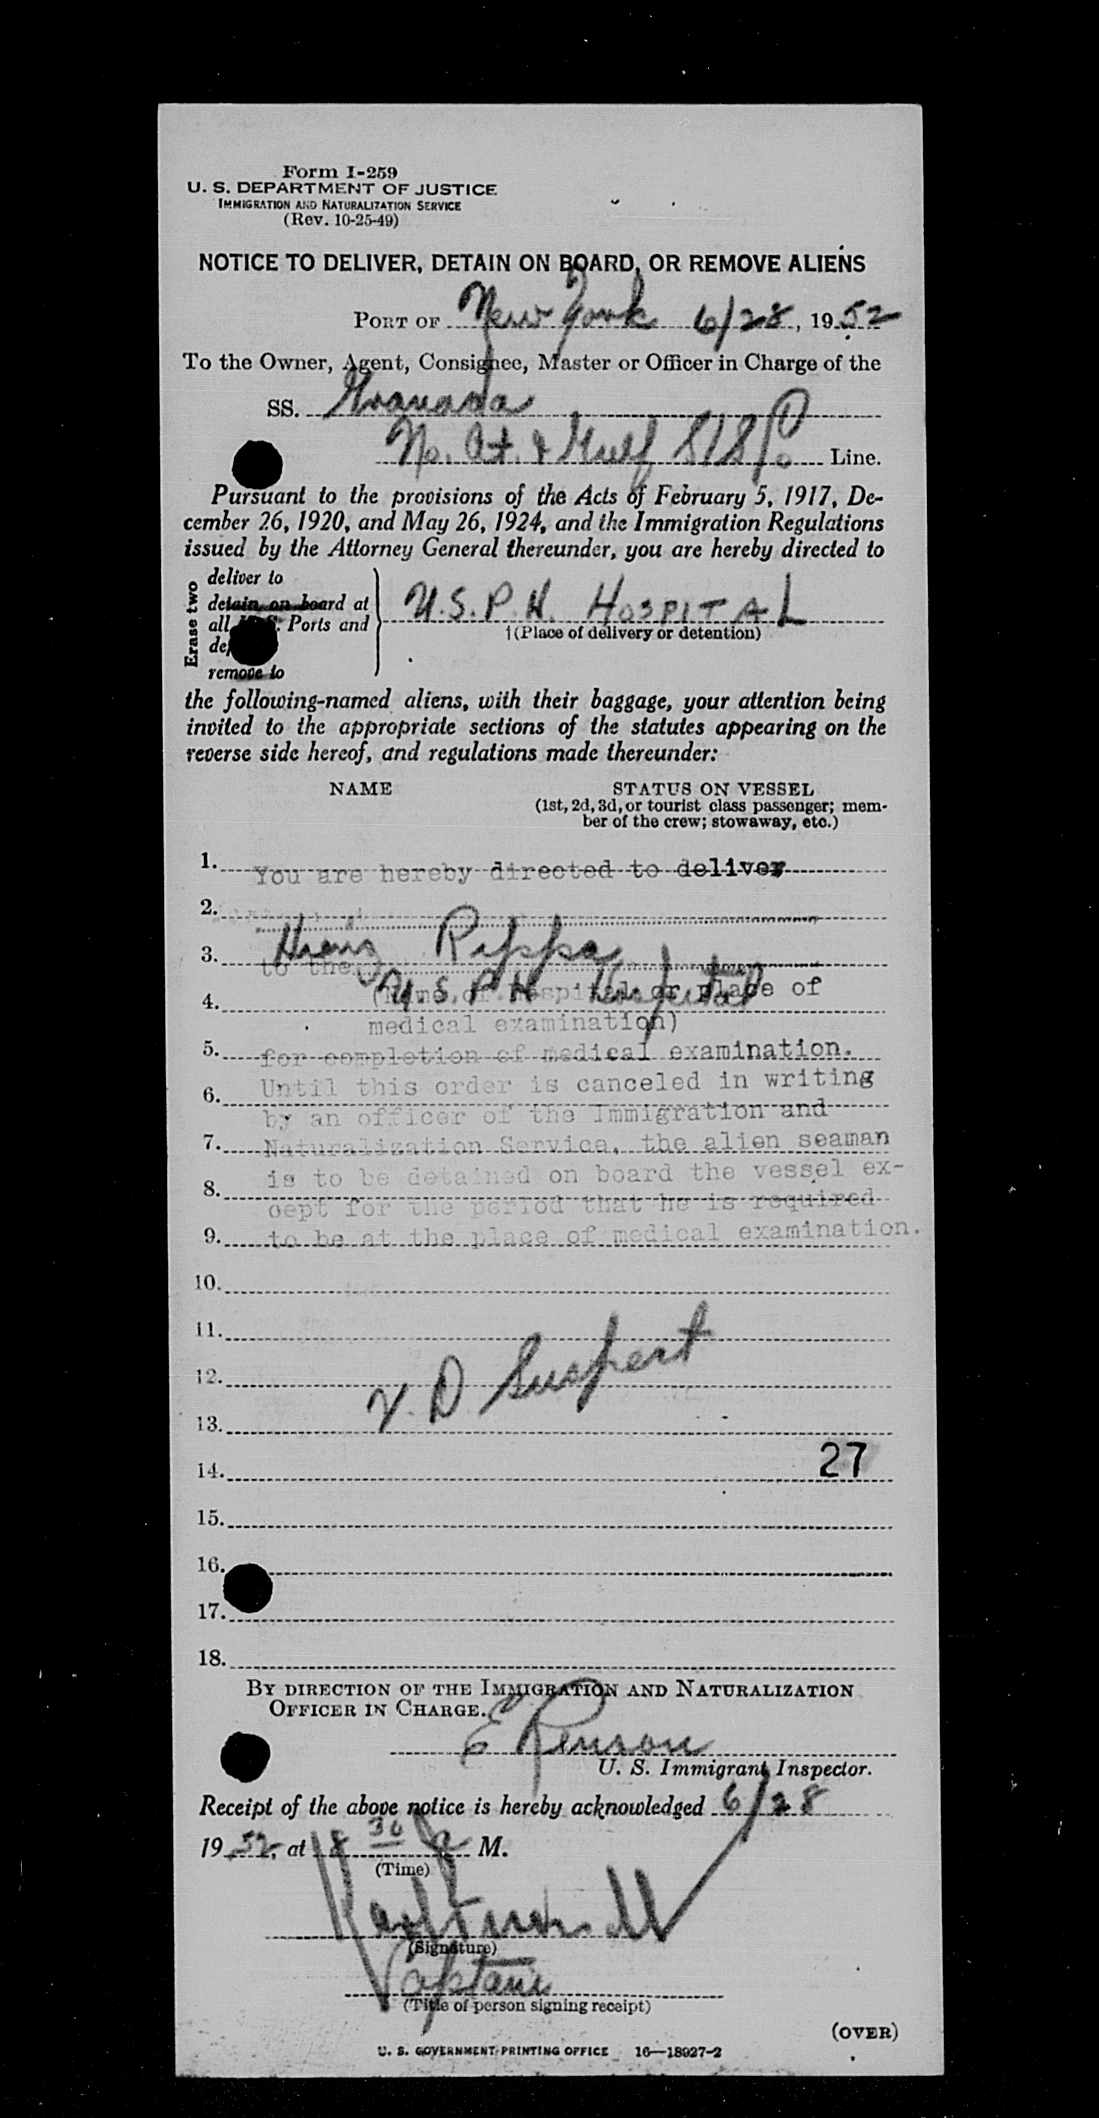 Form I-259
U. S. DEPARTMENT OF JUSTICE
IMMIGRATION AND NATURALIZATION SERVICE
(Rev. 10-25-49)
NOTICE TO DELIVER, DETAIN ON BOARD, OR REMOVE ALIENS
PORT OF New York 6/28, 1952
To the Owner, Agent, Consignee, Master or Officer in Charge of the
SS. Granada
No. At. & Gulf S/S Co Line.
Pursuant to the provisions of the Acts of February 5, 1917, De-
cember 26, 1920, and May 26, 1924, and the Immigration Regulations
issued by the Attorney General thereunder, you are hereby directed to
Erase two
deliver to
detain on board at
all U.S. Ports and
remove to
U.S.P.H. HOSPITAL
(Place of delivery or detention)
the following-named aliens, with their baggage, your attention being
invited to the appropriate sections of the statutes appearing on the
reverse side hereof, and regulations made thereunder:
NAME STATUS ON VESSEL
(1st, 2d, 3d, or tourist class passenger; mem-
ber of the crew; stowaway, etc.)
1. You are hereby directed to deliver
2.
3. Heinz Rippa
to the U S P H Hospital
4. (Name of hospital or place of
medical examination)
5. for completion of medical examination.
Until this order is canceled in writing
6. by an officer of the Immigration and
7. Naturalization Service, the alien seaman
is to be detained on board the vessel ex-
8. cept for the period that he is required
9. to be at the place of medical examination.
10.
11.
12. V. D Suspect
13.
14. 27
15.
16.
17.
18.
BY DIRECTION OF THE IMMIGRATION AND NATURALIZATION
OFFICER IN CHARGE.
E
U. S. Immigrant Inspector.
Receipt of the above notice is hereby acknowledged 6/28
1952, at 8 30 a M.
(Time)
(Signature)
Captain
(Title of person signing receipt)
(OVER)
U. S. GOVERNMENT PRINTING OFFICE 16—18927-2